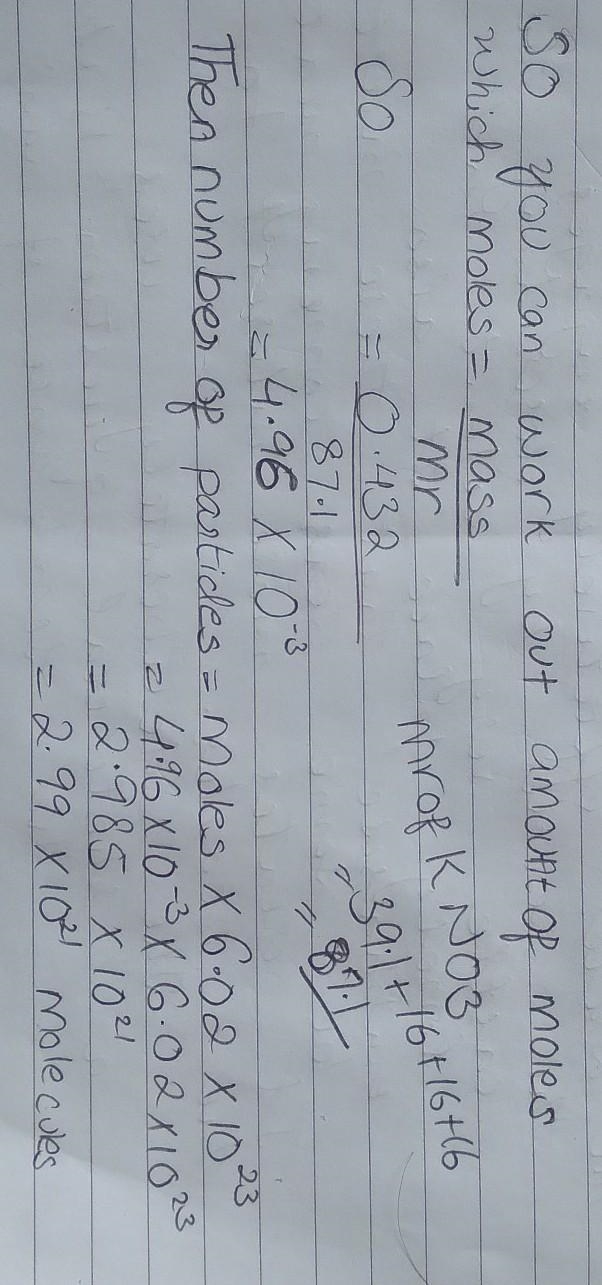 So you can work out amount of moles
which moles = mass
Mr
Mr of KNO3
So = 0.432
87.1
= 39.1 + 16 + 16 + 16
= 87.1
= 4.96 X 10⁻³
Then number of particles = Moles X 6.02 X 10²³
= 4.96 X 10⁻³ X 6.02 X 10²³
= 2.985 X 10²¹
= 2.99 X 10²¹ molecules